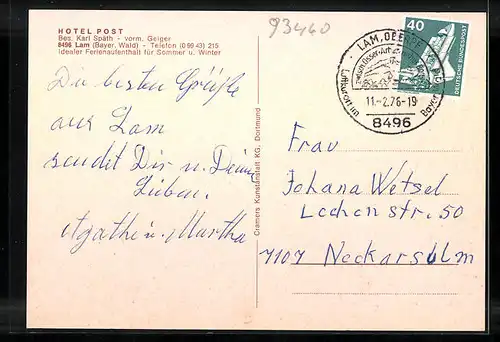 HOTEL POST
Bes. Karl Späth - vorm. Geiger
8496 Lam (Bayer. Wald) - Telefon (0 99 43) 215
Idealer Ferienaufenthalt für Sommer u. Winter
93460
40
DEUTSCHE BUNDESPOST
LAM,
Luftkurort im
11.-2.76-19
8496
Die besten Grüße
aus Lam
sendet Dir u. Deinen
Lieben.
Agathe u. Martha
Cramers Kunstanstalt KG, Dortmund
Frau
Johana Wetsel
Lochen str. 50
7107 Neckarsulm